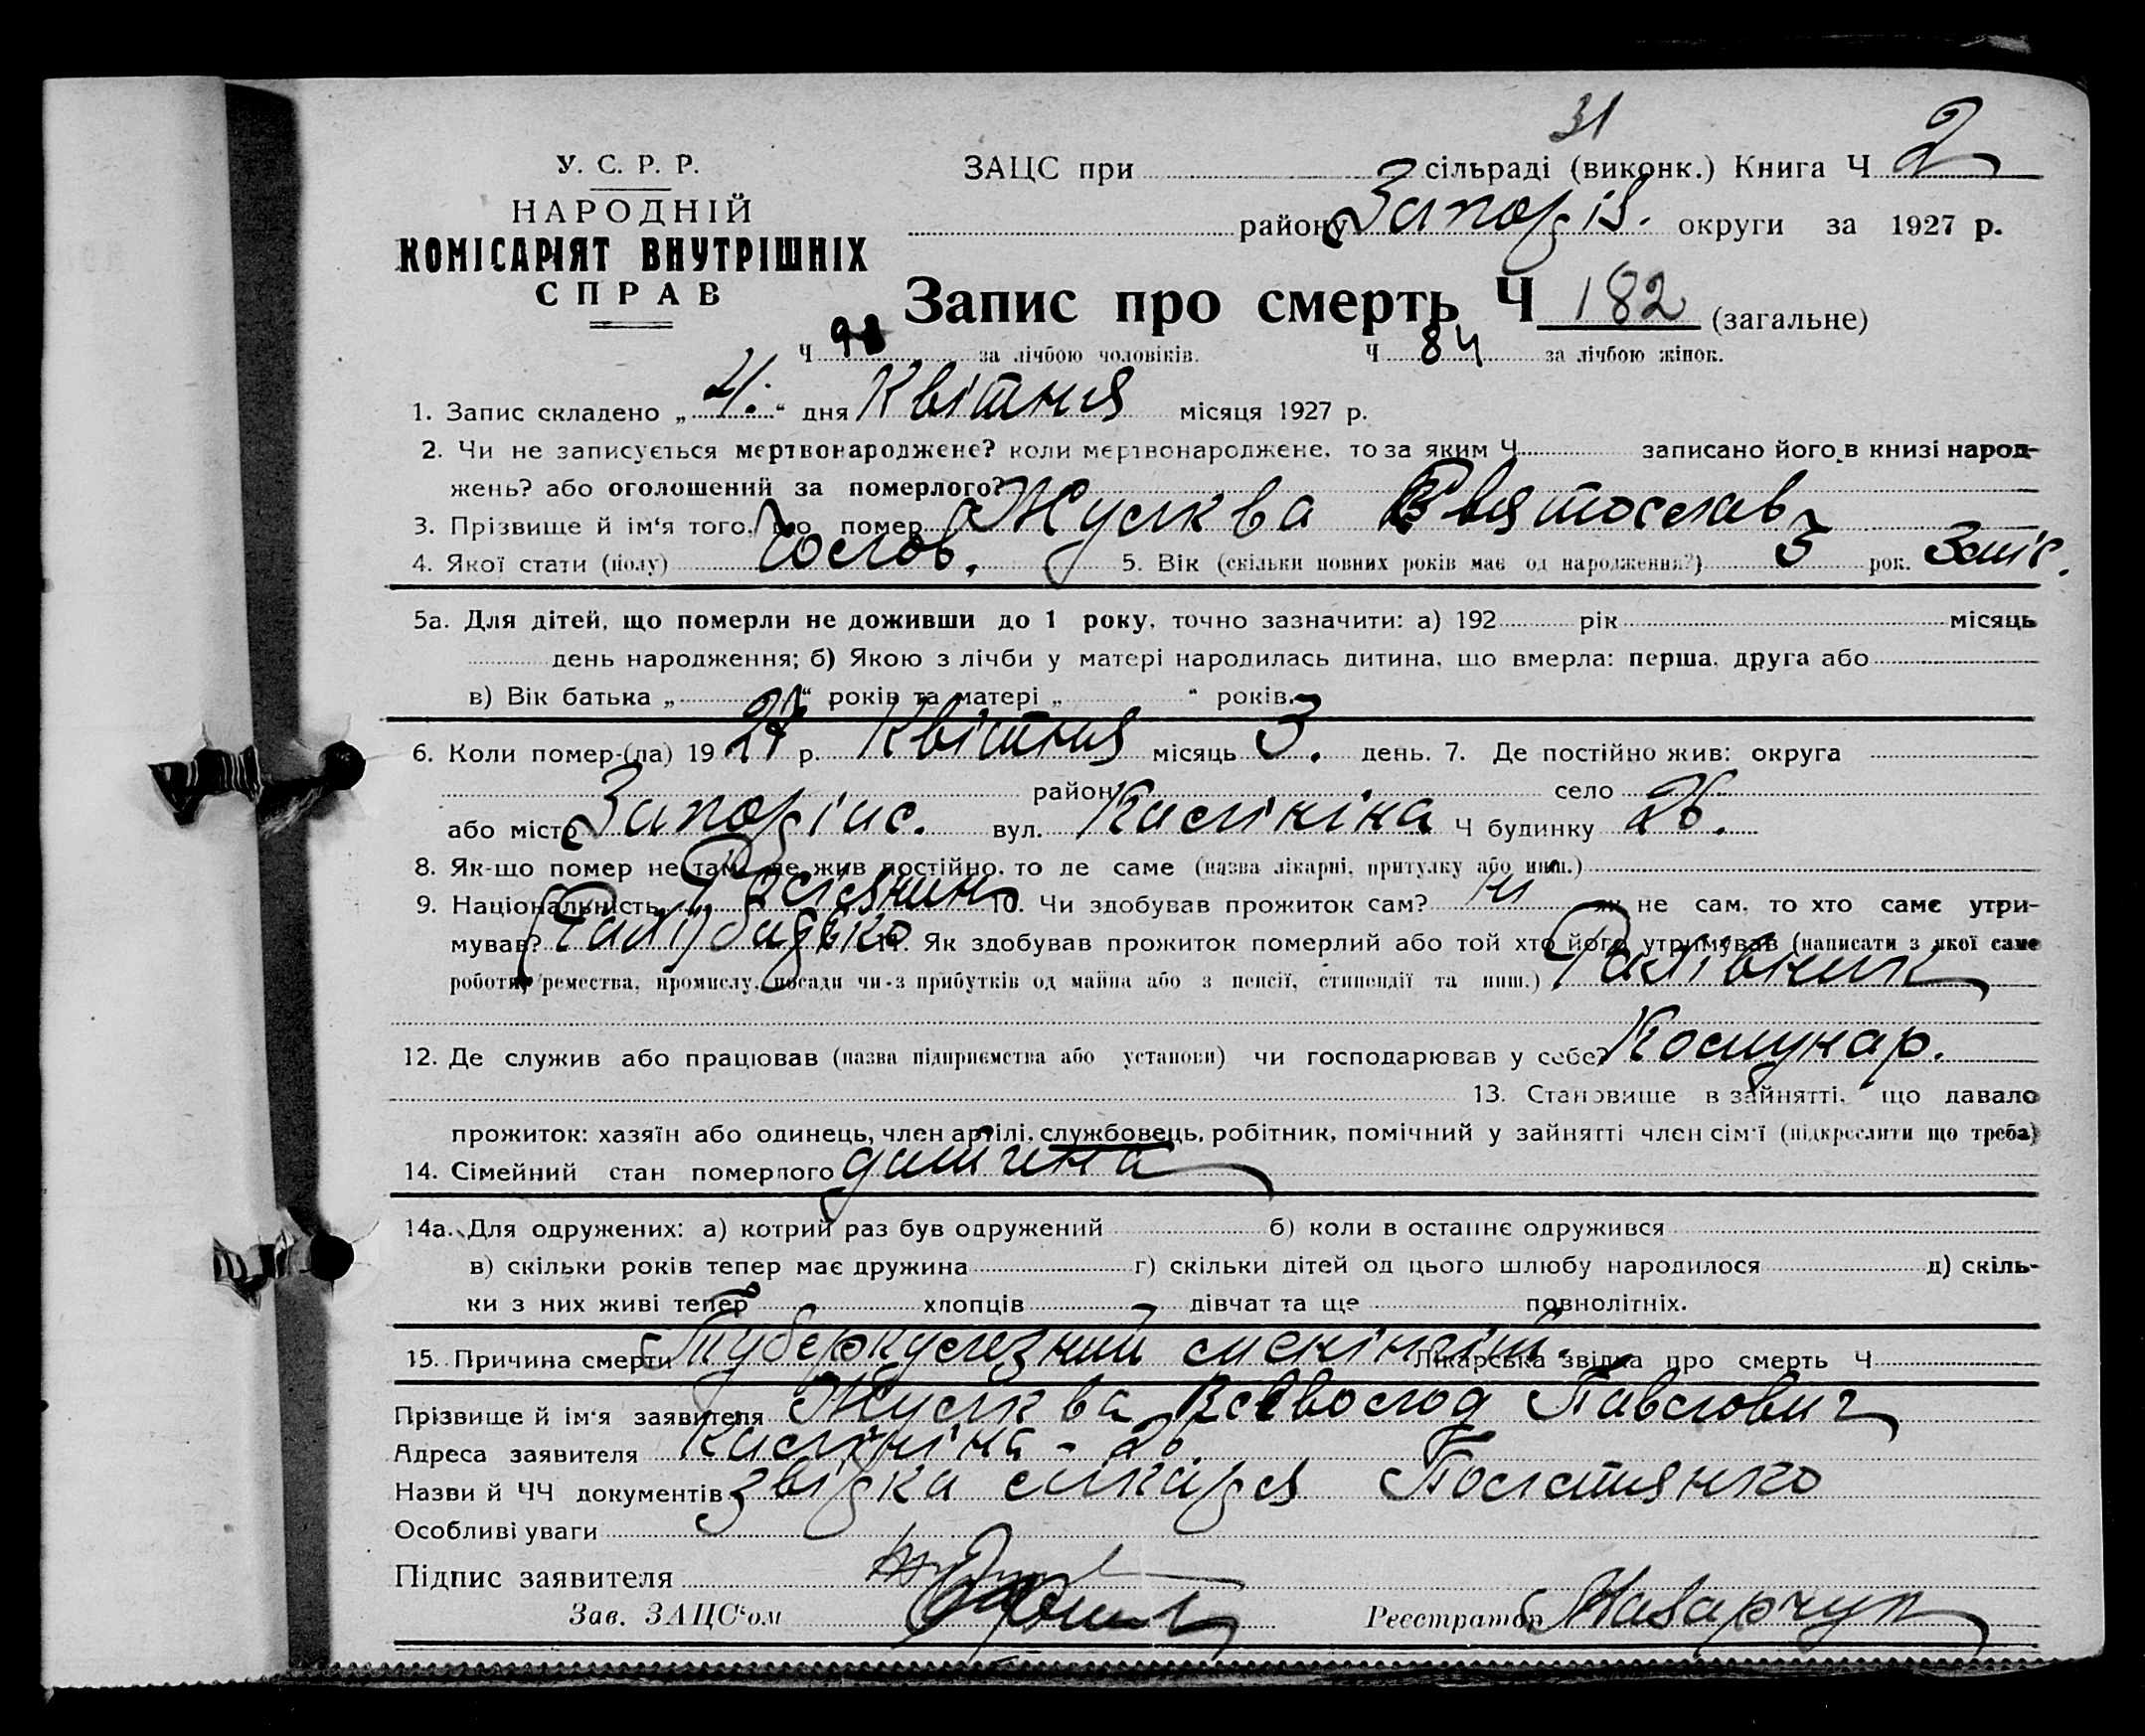 31
У. С. Р. Р.
НАРОДНІЙ
КОМІСАРІЯТ ВНУТРІШНІХ
СПРАВ
ЗАЦС при сільраді (виконк.) Книга Ч 2
району Запоріз. округи за 1927 р.
Запис про смерть Ч 182 (загальне)
Ч 98 за лічбою чоловіків. Ч 84 за лічбою жінок.
1. Запис складено „ 4. “ дня Квітня місяця 1927 р.
2. Чи не записується мертвонароджене? коли мертвонароджене, то за яким Ч записано його в книзі народ-
жень? або оголошений за померлого?
3. Прізвище й ім‘я того, що помер Жулква Святослав
4. Якої стати (полу) чолов. 5. Вік (скільки повних років має од народження?) 5 рок.
5а. Для дітей, що померли не доживши до 1 року, точно зазначити: а) 192 рік місяць
день народження; б) Якою з лічби у матері народилась дитина, що вмерла: перша, друга або
в) Вік батька „ “ років та матері „ “ років.
6. Коли помер-(ла) 1927 р. Квітня місяць 3. день. 7. Де постійно жив: округа
район село
або місто Запоріжс. вул. Калініна Ч будинку 26.
8. Як-що помер не там, де жив постійно, то де саме (назва лікарні, притулку або инш.)
9. Національність Росіянин 10. Чи здобував прожиток сам? ні як не сам, то хто саме утри-
мував? батько 11. Як здобував прожиток померлий або той хто його утримував (написати з якої саме
роботи, ремества, промислу, посади чи-з прибутків од майна або з пенсії, стипендії та инш.)
12. Де служив або працював (назва підприємства або установи) чи господарював у себе? Комунар.
13. Становище в зайнятті, що давало
прожиток: хазяїн або одинець, член артілі, службовець, робітник, помічний у зайнятті член сім‘ї (підкреслити що треба)
14. Сімейний стан померлого дитина
14а. Для одружених: а) котрий раз був одружений б) коли в останнє одружився
в) скільки років тепер має дружина г) скільки дітей од цього шлюбу народилося д) скіль-
ки з них живі тепер хлопців дівчат та ще повнолітніх.
15. Причина смерти Туберкулезний менінгіт. Лікарська звідка про смерть Ч
Прізвище й ім‘я заявителя Жулква Всеволод Павлович
Адреса заявителя Калініна - 26
Назви й ЧЧ документів звідка лікаря
Особливі уваги
Підпис заявителя
Зав. ЗАЦС‘ом Реєстратор Назарчук